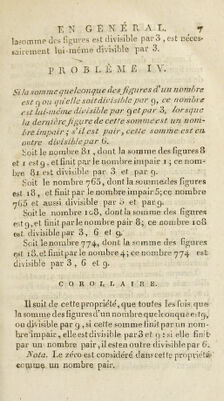 EN GÉNÉRAL. 7
la somme des figures est divisible par 3, est néces-
sairement lui-même divisible par 3.
PROBLÊME IV.
Si la somme quelconque des figures d'un nombre
est 9 ou qu'elle soit divisible par 9, ce nombre
est lui-même divisible par 9 et par 3, lorsque
la dernière figure de cette somme est un nom-
bre impair; s'il est pair, cette somme est en
outre divisible par 6.
Soit le nombre 81, dont la somme des figures 8
et 1 est 9, et finit par le nombre impair 1; ce nom-
bre 81 est divisible par 3 et par 9.
Soit le nombre 765, dont la somme des figures
est 18, et finit par le nombre impair 5; ce nombre
765 et aussi divisible par 3 et par 9.
Soit le nombre 108, dont la somme des figures
est 9, et finit par le nombre pair 8; ce nombre 108
est divisible par 3, 6 et 9.
Soit le nombre 774, dont la somme des figures
est 18, et finit par 4; ce nombre 774 est
divisible par 3, 6 et 9.
COROLLAIRE.
Il suit de cette propriété, que toutes les fois que
la somme des figures d'un nombre quelconque est 9,
ou divisible par 9, si cette somme finit par un nom-
bre impair, elle est divisible par 3 et 9: si elle finit
par un nombre pair, il est en outre divisible par 6.
Nota. Le zéro est considéré dans cette propriété
comme un nombre pair.